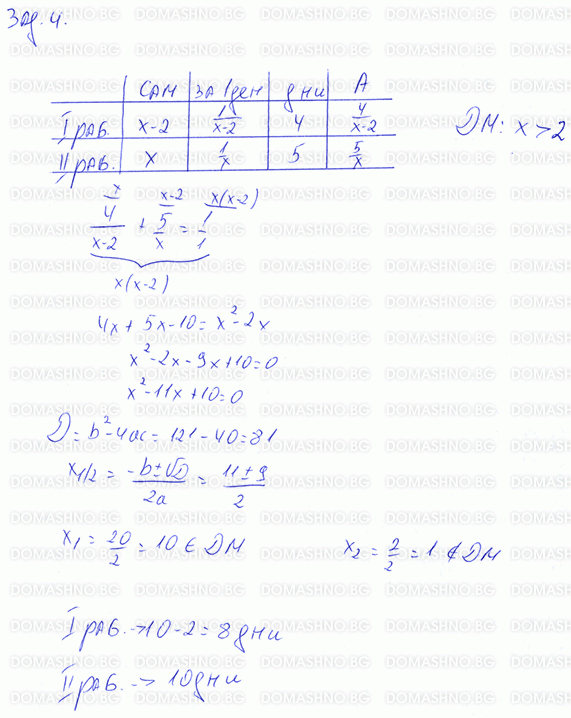 Зад. 4.
САМ за 1 ден дни А
I раб. x-2 1/(x-2) 4 4/(x-2)
II раб. x 1/x 5 5/x
ДМ: x > 2
x x-2 x(x-2)
4/(x-2) + 5/x = 1/1
x(x-2)
4x + 5x - 10 = x² - 2x
x² - 2x - 9x + 10 = 0
x² - 11x + 10 = 0
D = b² - 4ac = 121 - 40 = 81
x1/2 = (-b ± √D)/2a = (11 ± 9)/2
x₁ = 20/2 = 10 ∈ ДМ x₂ = 2/2 = 1 ∉ ДМ
I раб. → 10 - 2 = 8 дни
II раб. → 10 дни
DOMASHNO.BG